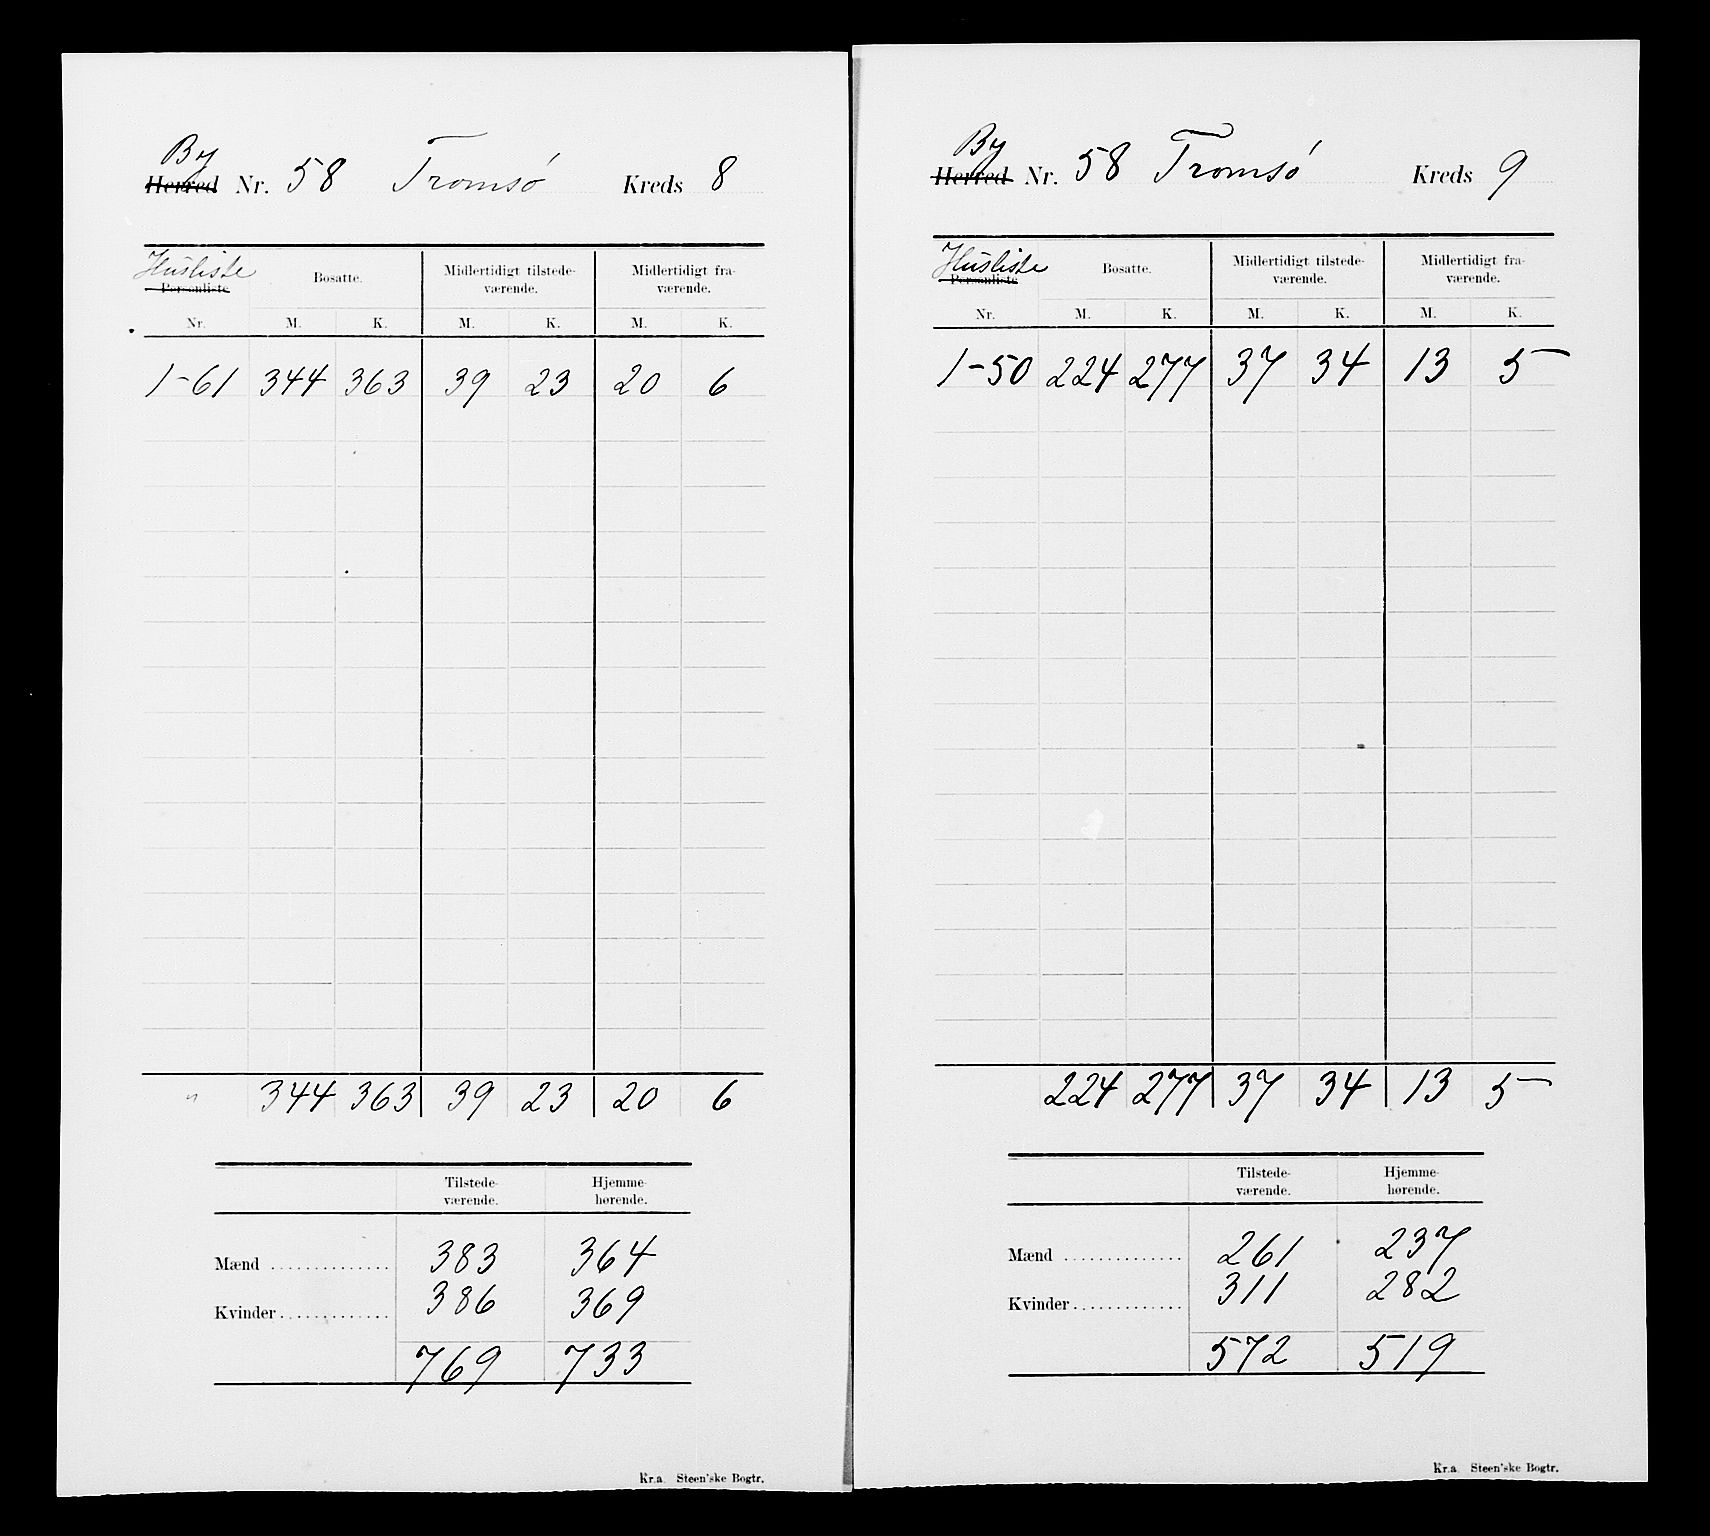 By
Herred Nr. 58 Tromsø Kreds 8
Husliste
Personliste
Bosatte.
Midlertidigt tilstede-
værende.
Midlertidigt fra-
værende.
Nr. M. K. M. K. M. K.
1-61 344 363 39 23 20 6
" 344 363 39 23 20 6
Tilstede-
værende.
Hjemme-
hørende.
Mænd .............. 383 364
Kvinder ............. 386 369
769 733
Kr.a. Steen'ske Bogtr.
By
Herred Nr. 58 Tromsø Kreds 9
Husliste
Personliste
Bosatte.
Midlertidigt tilstede-
værende.
Midlertidigt fra-
værende.
Nr. M. K. M. K. M. K.
1-50 224 277 37 34 13 5
224 277 37 34 13 5
Tilstede-
værende.
Hjemme-
hørende.
Mænd .............. 261 237
Kvinder ............. 311 282
572 519
Kr.a. Steen'ske Bogtr.